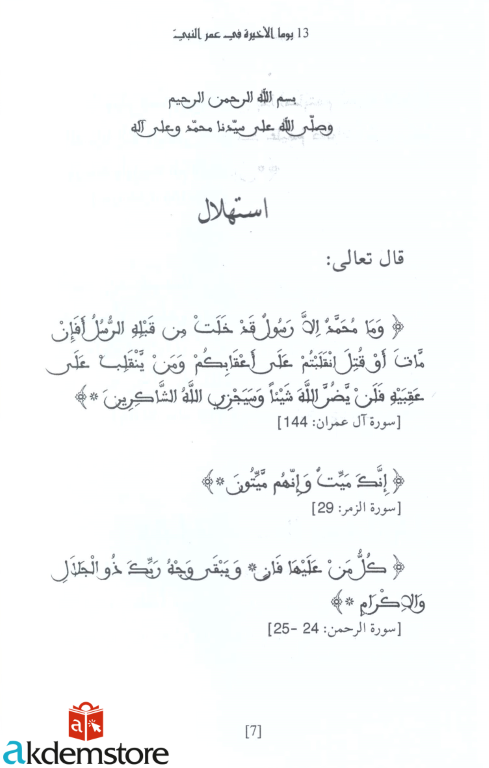 13 يوما الأخيرة في عمر النبيّ
بسم الله الرحمن الرحيم
وصلّى الله على سيّدنا محمّد وعلى آله
استهلال
قال تعالى:
﴿ وَمَا مُحَمَّدٌ اِلاَّ رَسُولٌ قَدْ خَلَتْ مِن قَبْلِهِ الرُّسُلُ أَفَإِنْ
مَّاتَ أَوْ قُتِلَ انْقَلَبْتُمْ عَلَى أَعْقَابِكُمْ وَمَنْ يَّنْقَلِبْ عَلَى
عَقِبَيْهِ فَلَنْ يَّضُرَّ اللَّهَ شَيْئاً وَسَيَجْزِي اللَّهُ الشَّاكِرِينَ * ﴾
[سورة آل عمران: 144]
﴿ إِنَّكَ مَيِّتٌ وَإِنَّهُم مَّيِّتُونَ * ﴾
[سورة الزمر: 29]
﴿ كُلُّ مَنْ عَلَيْهَا فَانٍ * وَيَبْقَى وَجْهُ رَبِّكَ ذُو الْجَلاَلِ
وَالاِكْرَامِ * ﴾
[سورة الرحمن: 24 -25]
[7]
akdemstore